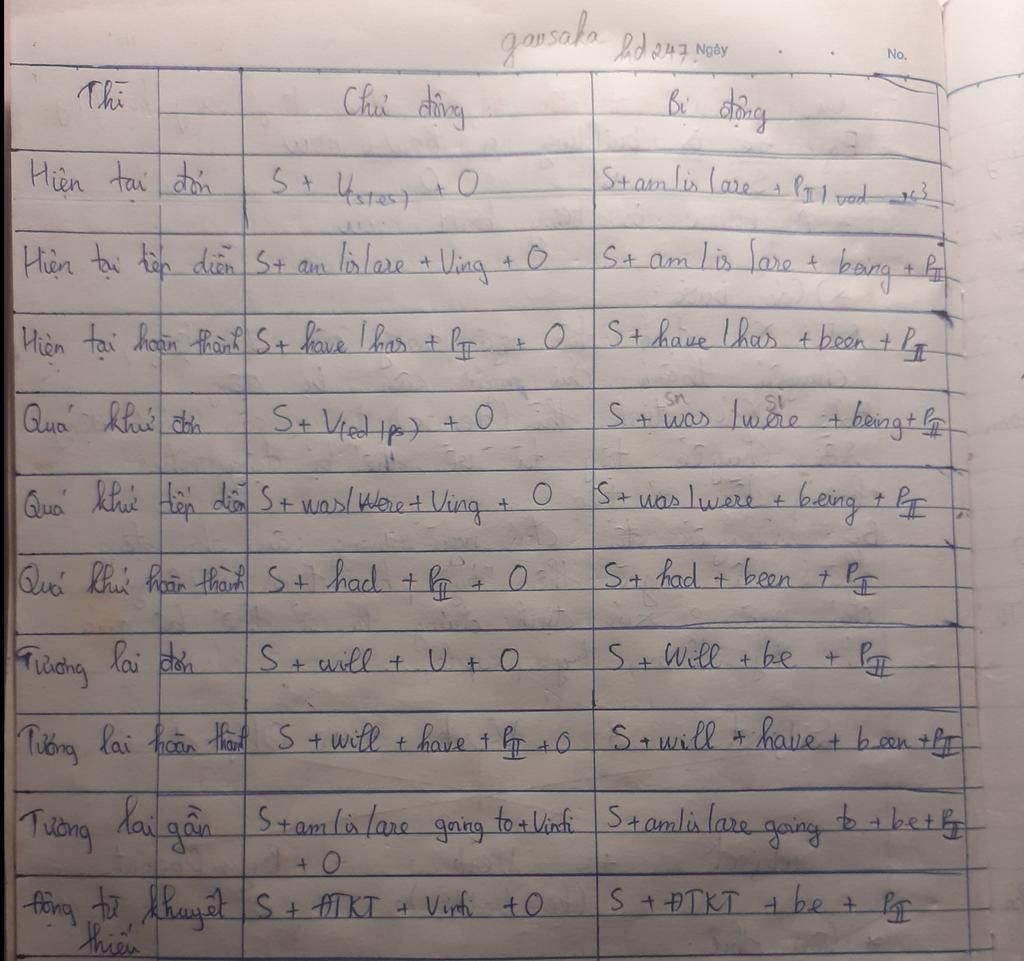 gausaka hd247 Ngày No.
Thì Chủ động Bị động
Hiện tại đơn S + V(s/es) + O S+am/is/are + PII/ved
Hiện tại tiếp diễn S+ am/is/are + Ving + O S+ am/is/are + being + PII
Hiện tại hoàn thành S+ have/has + PII + O S+ have/has + been + PII
sn si
Quá khứ đơn S + V(ed/ps) + O S + was/were + being+PII
Quá khứ tiếp diễn S+was/were+Ving + O S+was/were + being + PII
Quá khứ hoàn thành S + had + PII + O S + had + been + PII
Tương lai đơn S + will + V + O S + Will + be + PII
Tương lai hoàn thành S +will + have + PII +O S +will + have + been +PII
Tương lai gần S+am/is/are going to+Vinfi S+am/is/are going to + be+PII
+ O
Động từ khuyết S + ĐTKT + Vinfi +O S + ĐTKT + be + PII
thiếu